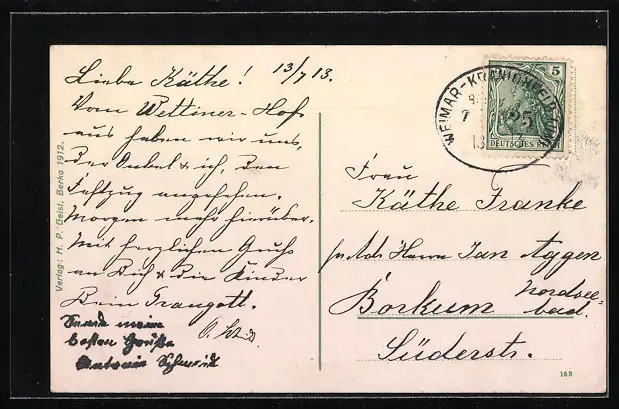 Liebe Käthe! 13/7 13.
Vom Wettiner-Hof
aus haben wir uns,
der Onkel & ich, den
Festzug angesehen.
Morgen mehr hierüber.
Mit herzlichen Gruß
an Dich & die Kinder
Dein Traugott.
Sende meine
besten Grüße
Antonie Schmid
Verlag: H. P. Geist, Berka 1912.
WEIMAR-KRANICHFELD
13 7 13
5
DEUTSCHES REICH
Frau
Käthe Franke
pr. Adr. Herrn Jan Aggen
Borkum Nordsee-
bad.
Süderstr.
163